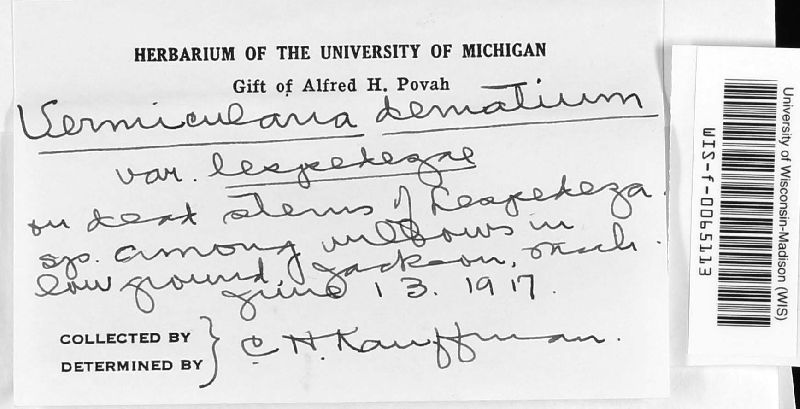 HERBARIUM OF THE UNIVERSITY OF MICHIGAN
Gift of Alfred H. Povah
Vermicularia dematium
var. lespedezae
on dead stems of Lespedeza
sp. among willows in
low ground, Jackson, Mich.
June 13. 1917.
COLLECTED BY
DETERMINED BY
C H. Kauffman.
University of Wisconsin-Madison (WIS)
WIS-f-0065113